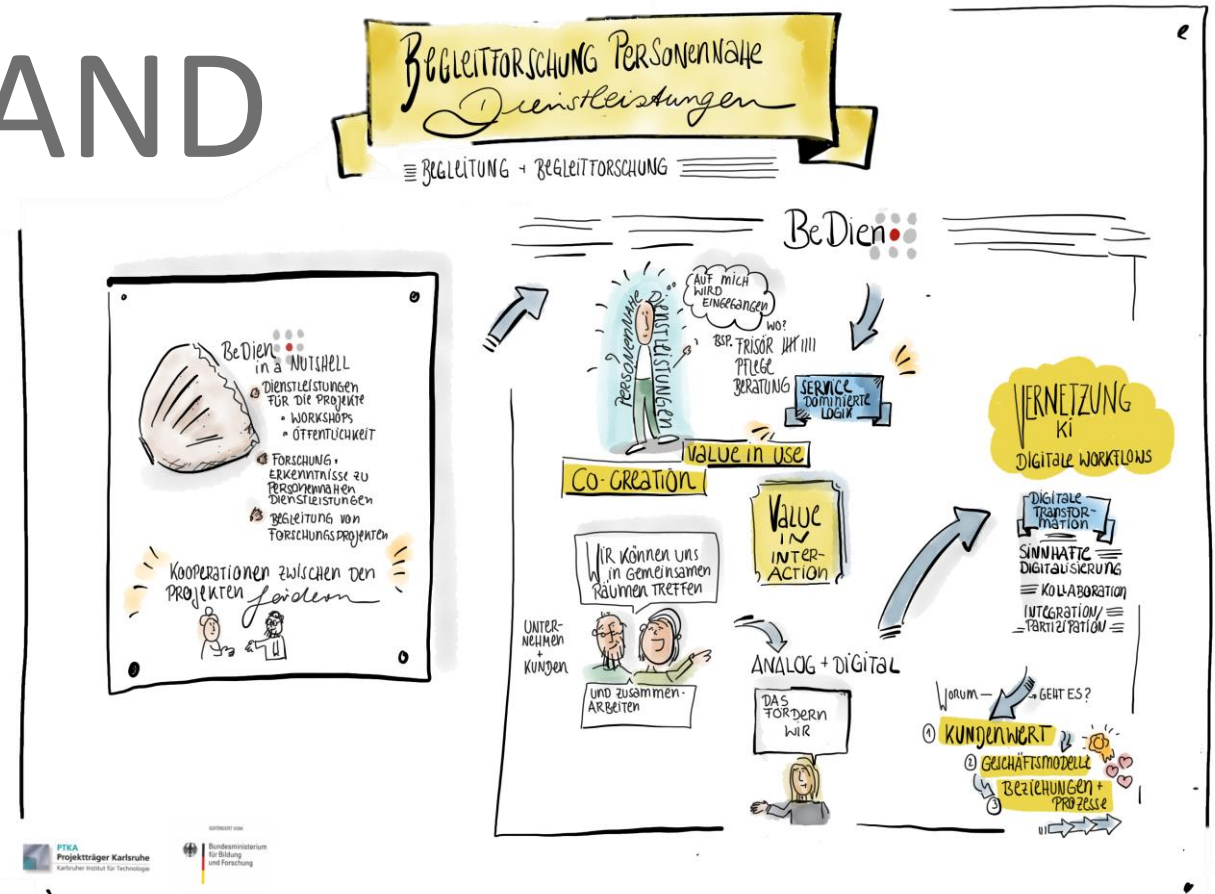 AND
BEGLEITFORSCHUNG PERSONENNAHE
Dienstleistungen
BEGLEITUNG + BEGLEITFORSCHUNG
BeDien
in a NUTSHELL
DIENSTLEISTUNGEN
FÜR DIE PROJEKTE
• WORKSHOPS
• ÖFFENTLICHKEIT
FORSCHUNG +
ERKENNTNISSE ZU
PERSONENNAHEN
DIENSTLEISTUNGEN
BEGLEITUNG VON
FORSCHUNGSPROJEKTEN
KOOPERATIONEN ZWISCHEN DEN
PROJEKTEN fördern
BeDien
PERSONENNAHE
DIENSTLEISTUNGEN
AUF MICH
WIRD
EINGEGANGEN
WO?
BSP. FRISÖR
PFLEGE
BERATUNG
SERVICE
DOMINIERTE
LOGIK
VALUE IN USE
CO-CREATION
VALUE
IN
INTER-
ACTION
WIR KÖNNEN UNS
IN GEMEINSAMEN
RÄUMEN TREFFEN
UNTER-
NEHMEN
+
KUNDEN
UND ZUSAMMEN-
ARBEITEN
ANALOG + DIGITAL
DAS
FÖRDERN
WIR
VERNETZUNG
KI
DIGITALE WORKFLOWS
DIGITALE
TRANSFOR-
MATION
SINNHAFTE
DIGITALISIERUNG
KOLLABORATION
INTEGRATION/
PARTIZIPATION
WORUM — GEHT ES?
① KUNDENWERT
② GESCHÄFTSMODELLE
BEZIEHUNGEN +
③ PROZESSE
PTKA
Projektträger Karlsruhe
Karlsruher Institut für Technologie
GEFÖRDERT VOM
Bundesministerium
für Bildung
und Forschung